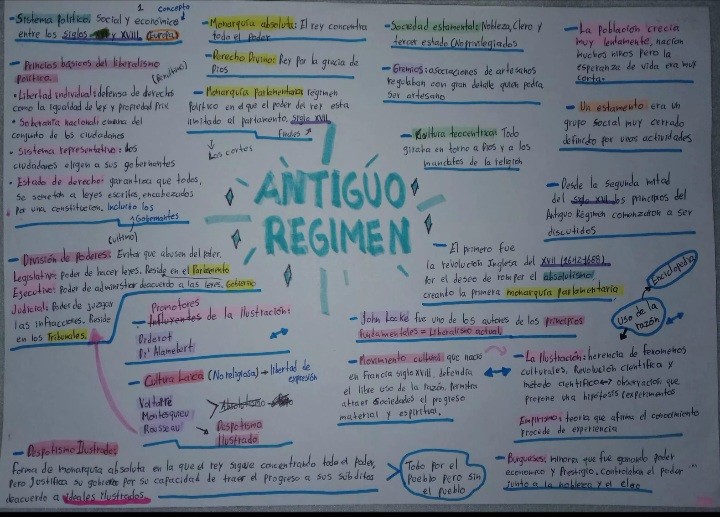 1 concepto
- Sistema político, Social y económico
entre los siglos y XVIII, Europa
- Princios básicos del liberalismo
político.
(Primitivo)
• Libertad individual: defensa de derechos
como la igualdad de ley y propiedad priv
• Soberanía nacional: emana del
conjunto de los ciudadanos
• Sistema representativo: los
ciudadanos eligen a sus gobernantes
• Estado de derecho: garantiza que todos,
se someten a leyes escritas, encabezados
por una constitucion. Incluito los
Gobernantes
(ultimo)
- División de poderes: Evitar que abusen del poder.
Legislativo: Poder de hacer leyes. Reside en el Parlamento
Ejecutivo: Poder de administrar deacuerdo a las leyes. Gobierno
Judicial: Poder de juzgar
las infracciones. Reside
en los Tribunales.
- Monarquía absoluta: El rey concentra
todo el poder
- Derecho Divino: Rey por la gracia de
Dios
- Monarquía Parlamentaria: regimen
Político en el que el poder del rey esta
limitado al parlamento. Siglo XVII
Finales
↓ Las cortes
ANTIGÜO
REGIMEN
- Sociedad estamental: Nobleza, Clero y
tercer estado (No privilegiados
- Gremios: asociaciones de artesanos
regulaban con gran detalle quien podía
ser artesano
- Cultura teocentrica: Todo
giraba en torno a Dios y a los
mandatos de la religion
- La Poblacion crecia
muy lentamente, nacian
muchos niños pero la
esperanza de vida era muy
corta.
- Un estamento era un
grupo social muy cerrado
definido por unas actividades
- Desde la segunda mitad
del siglo XVII los principios del
Antiguo Régimen comenzaron a ser
discutidos
- El primero fue
la revolucion Inglesa del XVII (1642-1688)
Por el deseo de romper el absolutismo
creando la primera monarquia parlamentaria
Enciclopedia
Uso de la
razón
- Promotores
Influyentes de la Ilustración:
Diderot
Di'Alambert
- Cultura Laica (No religiosa) → libertad de
expresión
Voltaire
Montesqueu
Rousseau
Absolutismo
Despotismo
Ilustrado
- John Locke fue uno de los autores de los principios
funtamentales = Liberalismo actual
- Movimiento cultural que nace
en Francia siglo XVIII. defendía
el libre uso de la razón. Permitía
atraer Sociedades al progreso
material y espiritual.
- La Ilustración: herencia de fenomenos
culturales. Revolución científica y
método científico ↔ observacion que
propone una hipótesis (experimentos
Empirismo: teoria que afirma el conocimiento
Procede de experiencia
- Despotismo Ilustrado:
Forma de monarquia absoluta en la que el rey sigue concentrando todo el poder,
Pero Justifica su gobierno por su capacidad de traer el progreso a sus súbditos
deacuerdo a ideales Ilustrados.
Todo por el
Pueblo pero sin
el pueblo
- Burgueses: minoria que fue ganando poder
economico y Prestigio. Controlaban el poder
Junto a la nobleza y el cleo